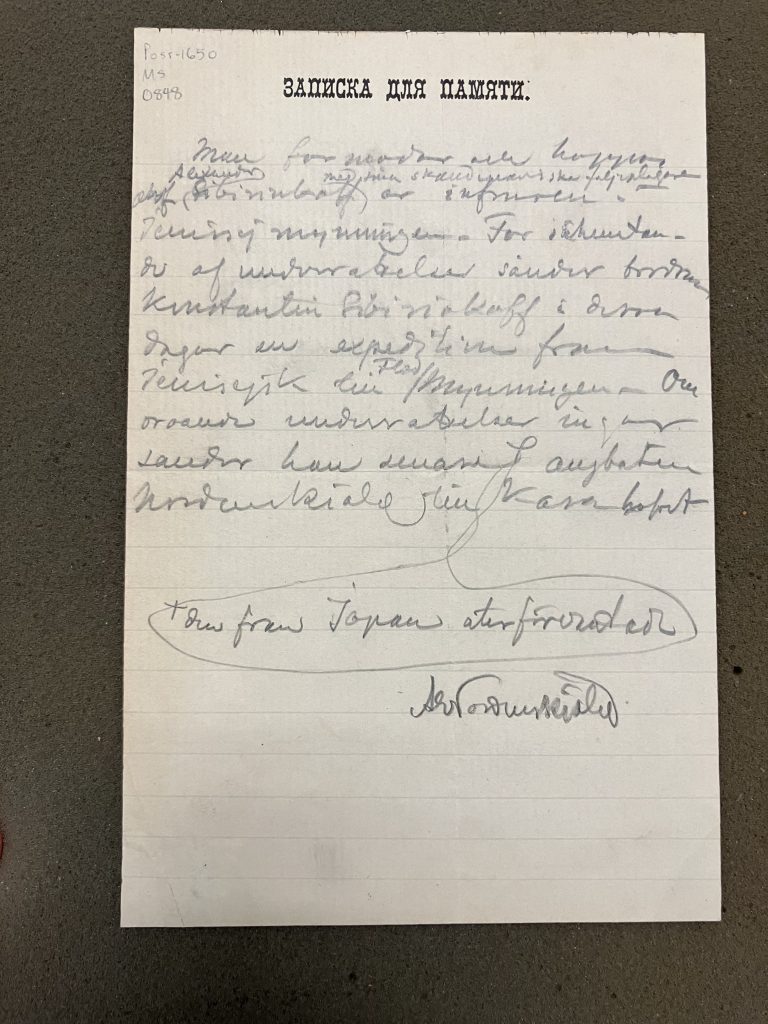 Post-1650
MS
0848
ЗАПИСКА ДЛЯ ПАМЯТИ.
Man förmodar och hoppas
Alexander med sina skandinaviska
(Sibiriakoff) är infrusen i
Jenissejmynningen. För inhemtan-
de af underrättelser sänder brodren
Konstantin Sibiriakoff i dessa
dagar en expedition från
Jeniseisk till
Flod/Mynningen. Om
oroande underrättelser ingår
sänder han senare ångbåten
Nordenskiöld till Kara hafvet
+ den från Japan återförväntade
AENordenskiöld